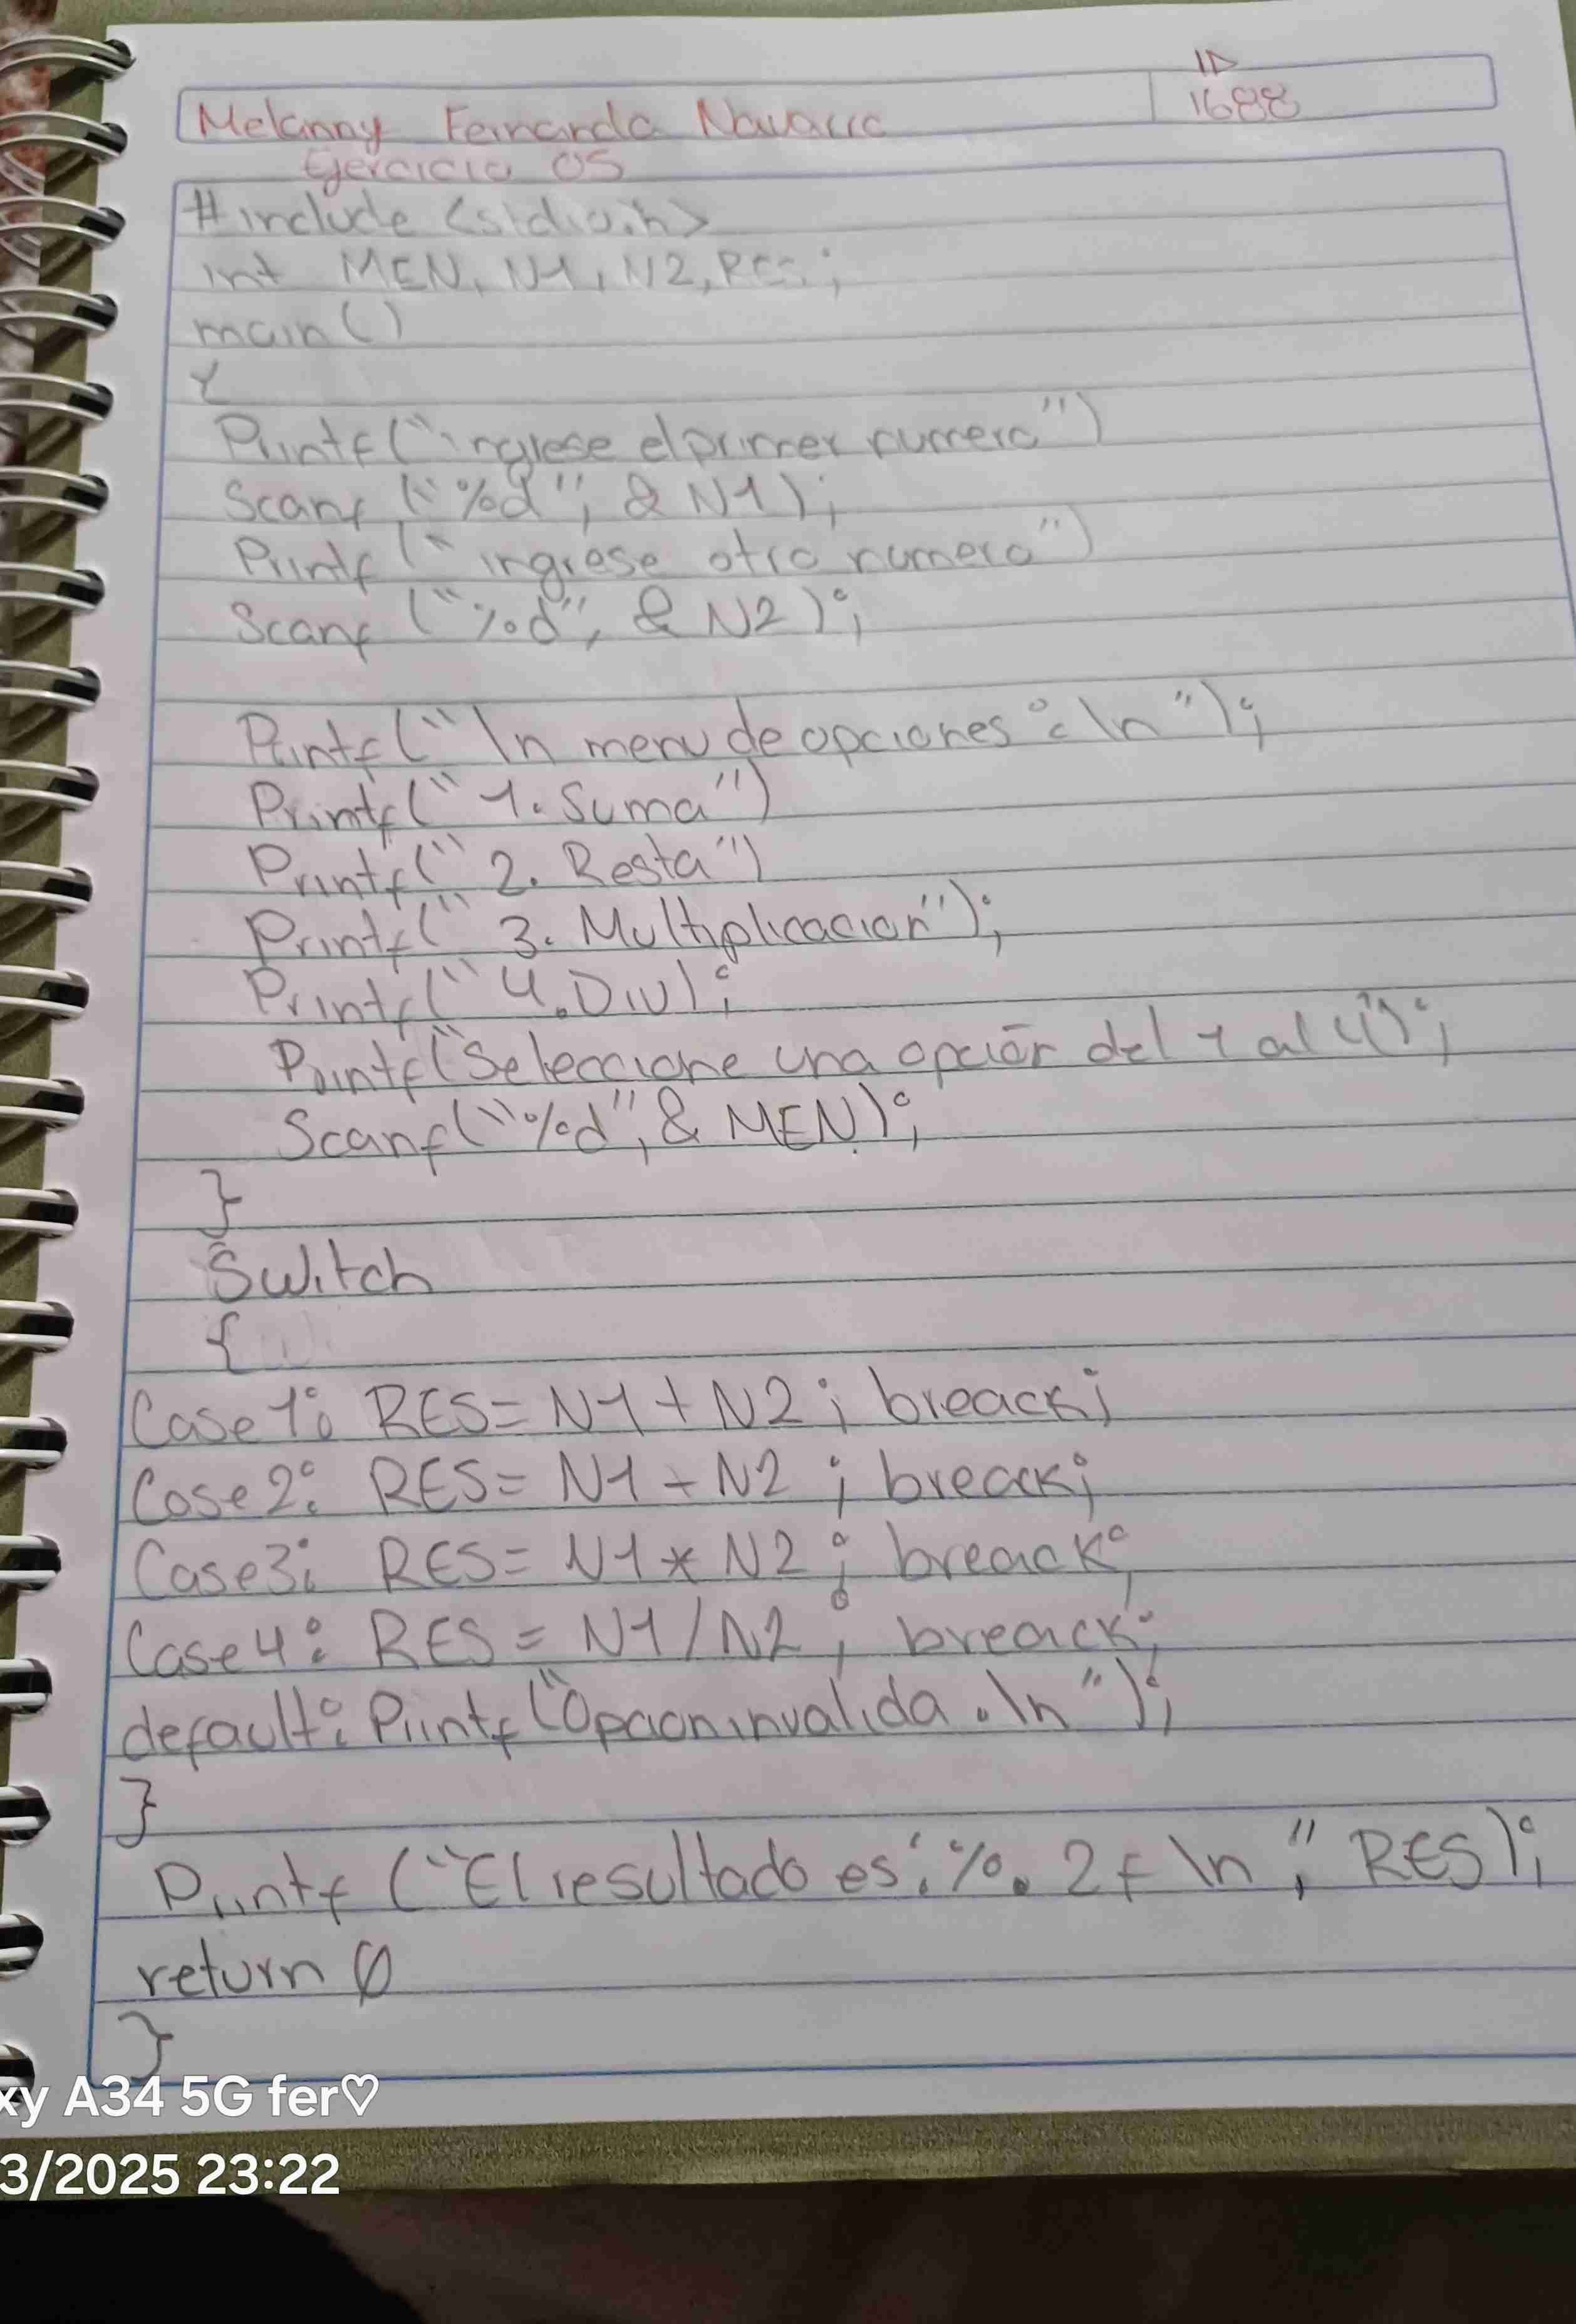 ID
Melanny Fernanda Navarro 1688
Ejercicio 05
#include <stdio.h>
int MEN, N1, N2, RES;
main()
{
Printf("ingrese el primer numero")
Scanf ("%d", & N1);
Printf ("ingrese otro numero")
Scanf ("%d", & N2);
Printf("\n menu de opciones: \n");
Printf("1. Suma")
Printf("2. Resta")
Printf("3. Multiplicacion");
Printf("4. Div);
Printf("Seleccione una opción del 1 al 4");
Scanf("%d", & MEN);
}
Switch
{
Case 1: RES= N1 + N2; breack;
Case 2: RES= N1 - N2; breack;
Case 3: RES= N1 * N2; breack;
Case 4: RES = N1 / N2; breack;
default: Printf ("Opcion invalida. \n");
}
Printf ("El resultado es: %. 2f \n", RES);
return 0
}
xy A34 5G fer♡
3/2025 23:22